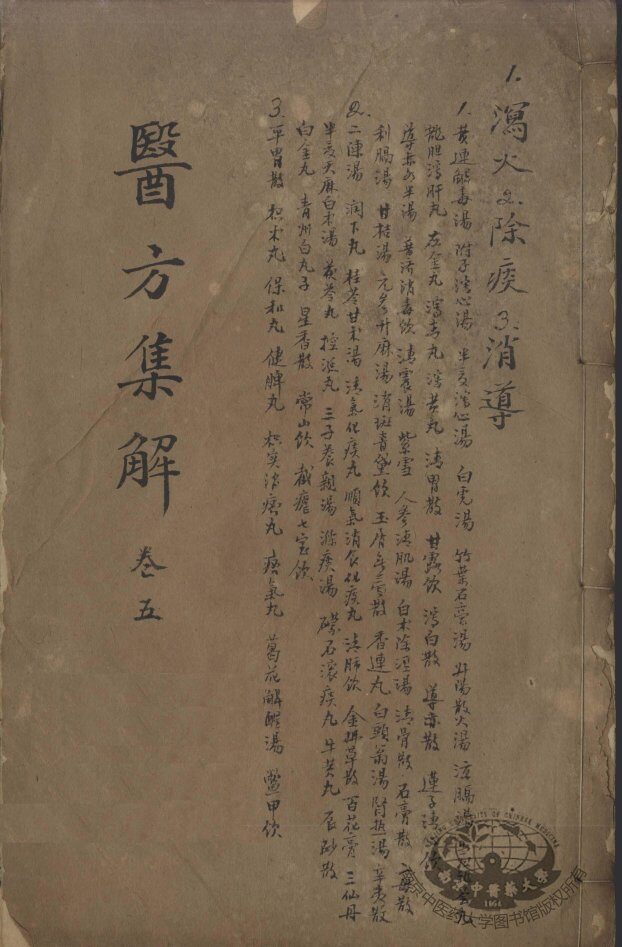 1.瀉火 2.除痰 3.消導
1.黄連解毒湯 附子瀉心湯 半夏瀉心湯 白虎湯 竹葉石膏湯 升陽散火湯 涼膈散
龍胆瀉肝丸 左金丸 瀉青丸 瀉黄丸 清胃散 甘露飲 瀉白散 導赤散 蓮子清心飲
導赤各半湯 普济消毒飲 清震湯 紫雪 人參清肌湯 白朮除湿湯 清骨散 石膏散
利膈湯 甘桔湯 元參升麻湯 消斑青黛飲 玉屑無忧散 香連丸 白頭翁湯 腎熱湯 辛夷散
2.二陳湯 润下丸 桂苓甘朮湯 清氣化痰丸 順氣消食化痰丸 清肺飲 金沸草散 百花膏 三仙丹
半夏天麻白朮湯 茯苓丸 控涎丸 三子养親湯 滌痰湯 礞石滚痰丸 牛黄丸 辰砂散
白金丸 青州白丸子 星香散 常山飲 截瘧七宝飲
3.平胃散 枳朮丸 保和丸 健脾丸 枳实消痞丸 痞氣丸 葛花解醒湯 鱉甲飲
醫方集解 卷五
南京中醫藥大學
1954
南京中医药大学图书馆版权所有